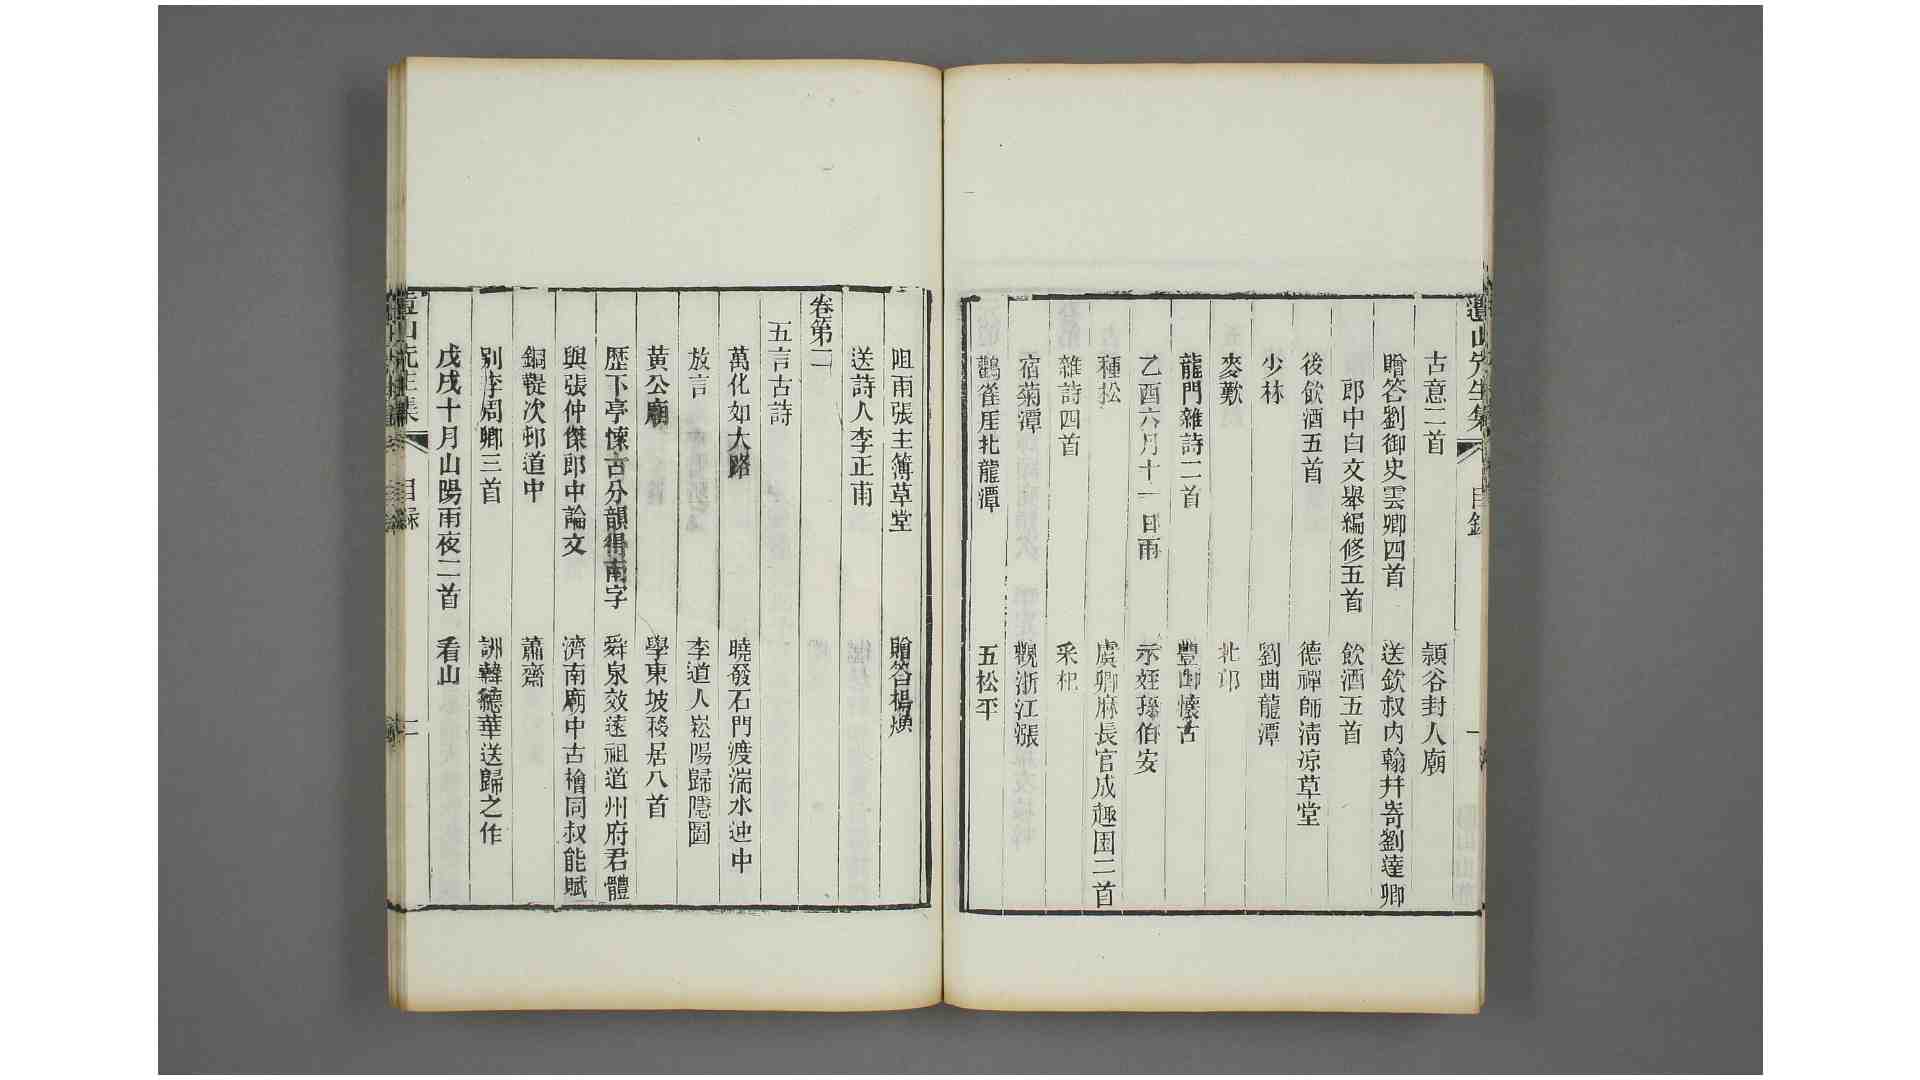 遺山先生集 目錄 一
古意二首 潁谷封人廟
贈答劉御史雲卿四首 送欽叔內翰幷寄劉達卿
郎中白文舉編修五首 飲酒五首
後飲酒五首 德禪師淸凉草堂
少林 劉曲龍潭
麥歎 北邙
龍門雜詩二首 豐山懷古
乙酉六月十一日雨 示姪孫伯安
種松 虞卿麻長官成趣園二首
雜詩四首 采杞
宿菊潭 觀浙江漲
鸛雀崖北龍潭 五松平
阻雨張主簿草堂 贈答楊煥
送詩人李正甫
卷第二
五言古詩
萬化如大路 曉發石門渡湍水道中
放言 李道人崧陽歸隱圖
黃公廟 學東坡移居八首
歷下亭懷古分韻得南字 舜泉效遠祖道州府君體
與張仲傑郎中論文 濟南廟中古檜同叔能賦
銅鞮次邨道中 蕭齋
別李周卿三首 詶韓德華送歸之作
戊戌十月山陽雨夜二首 看山
遺山先生集 目錄 二